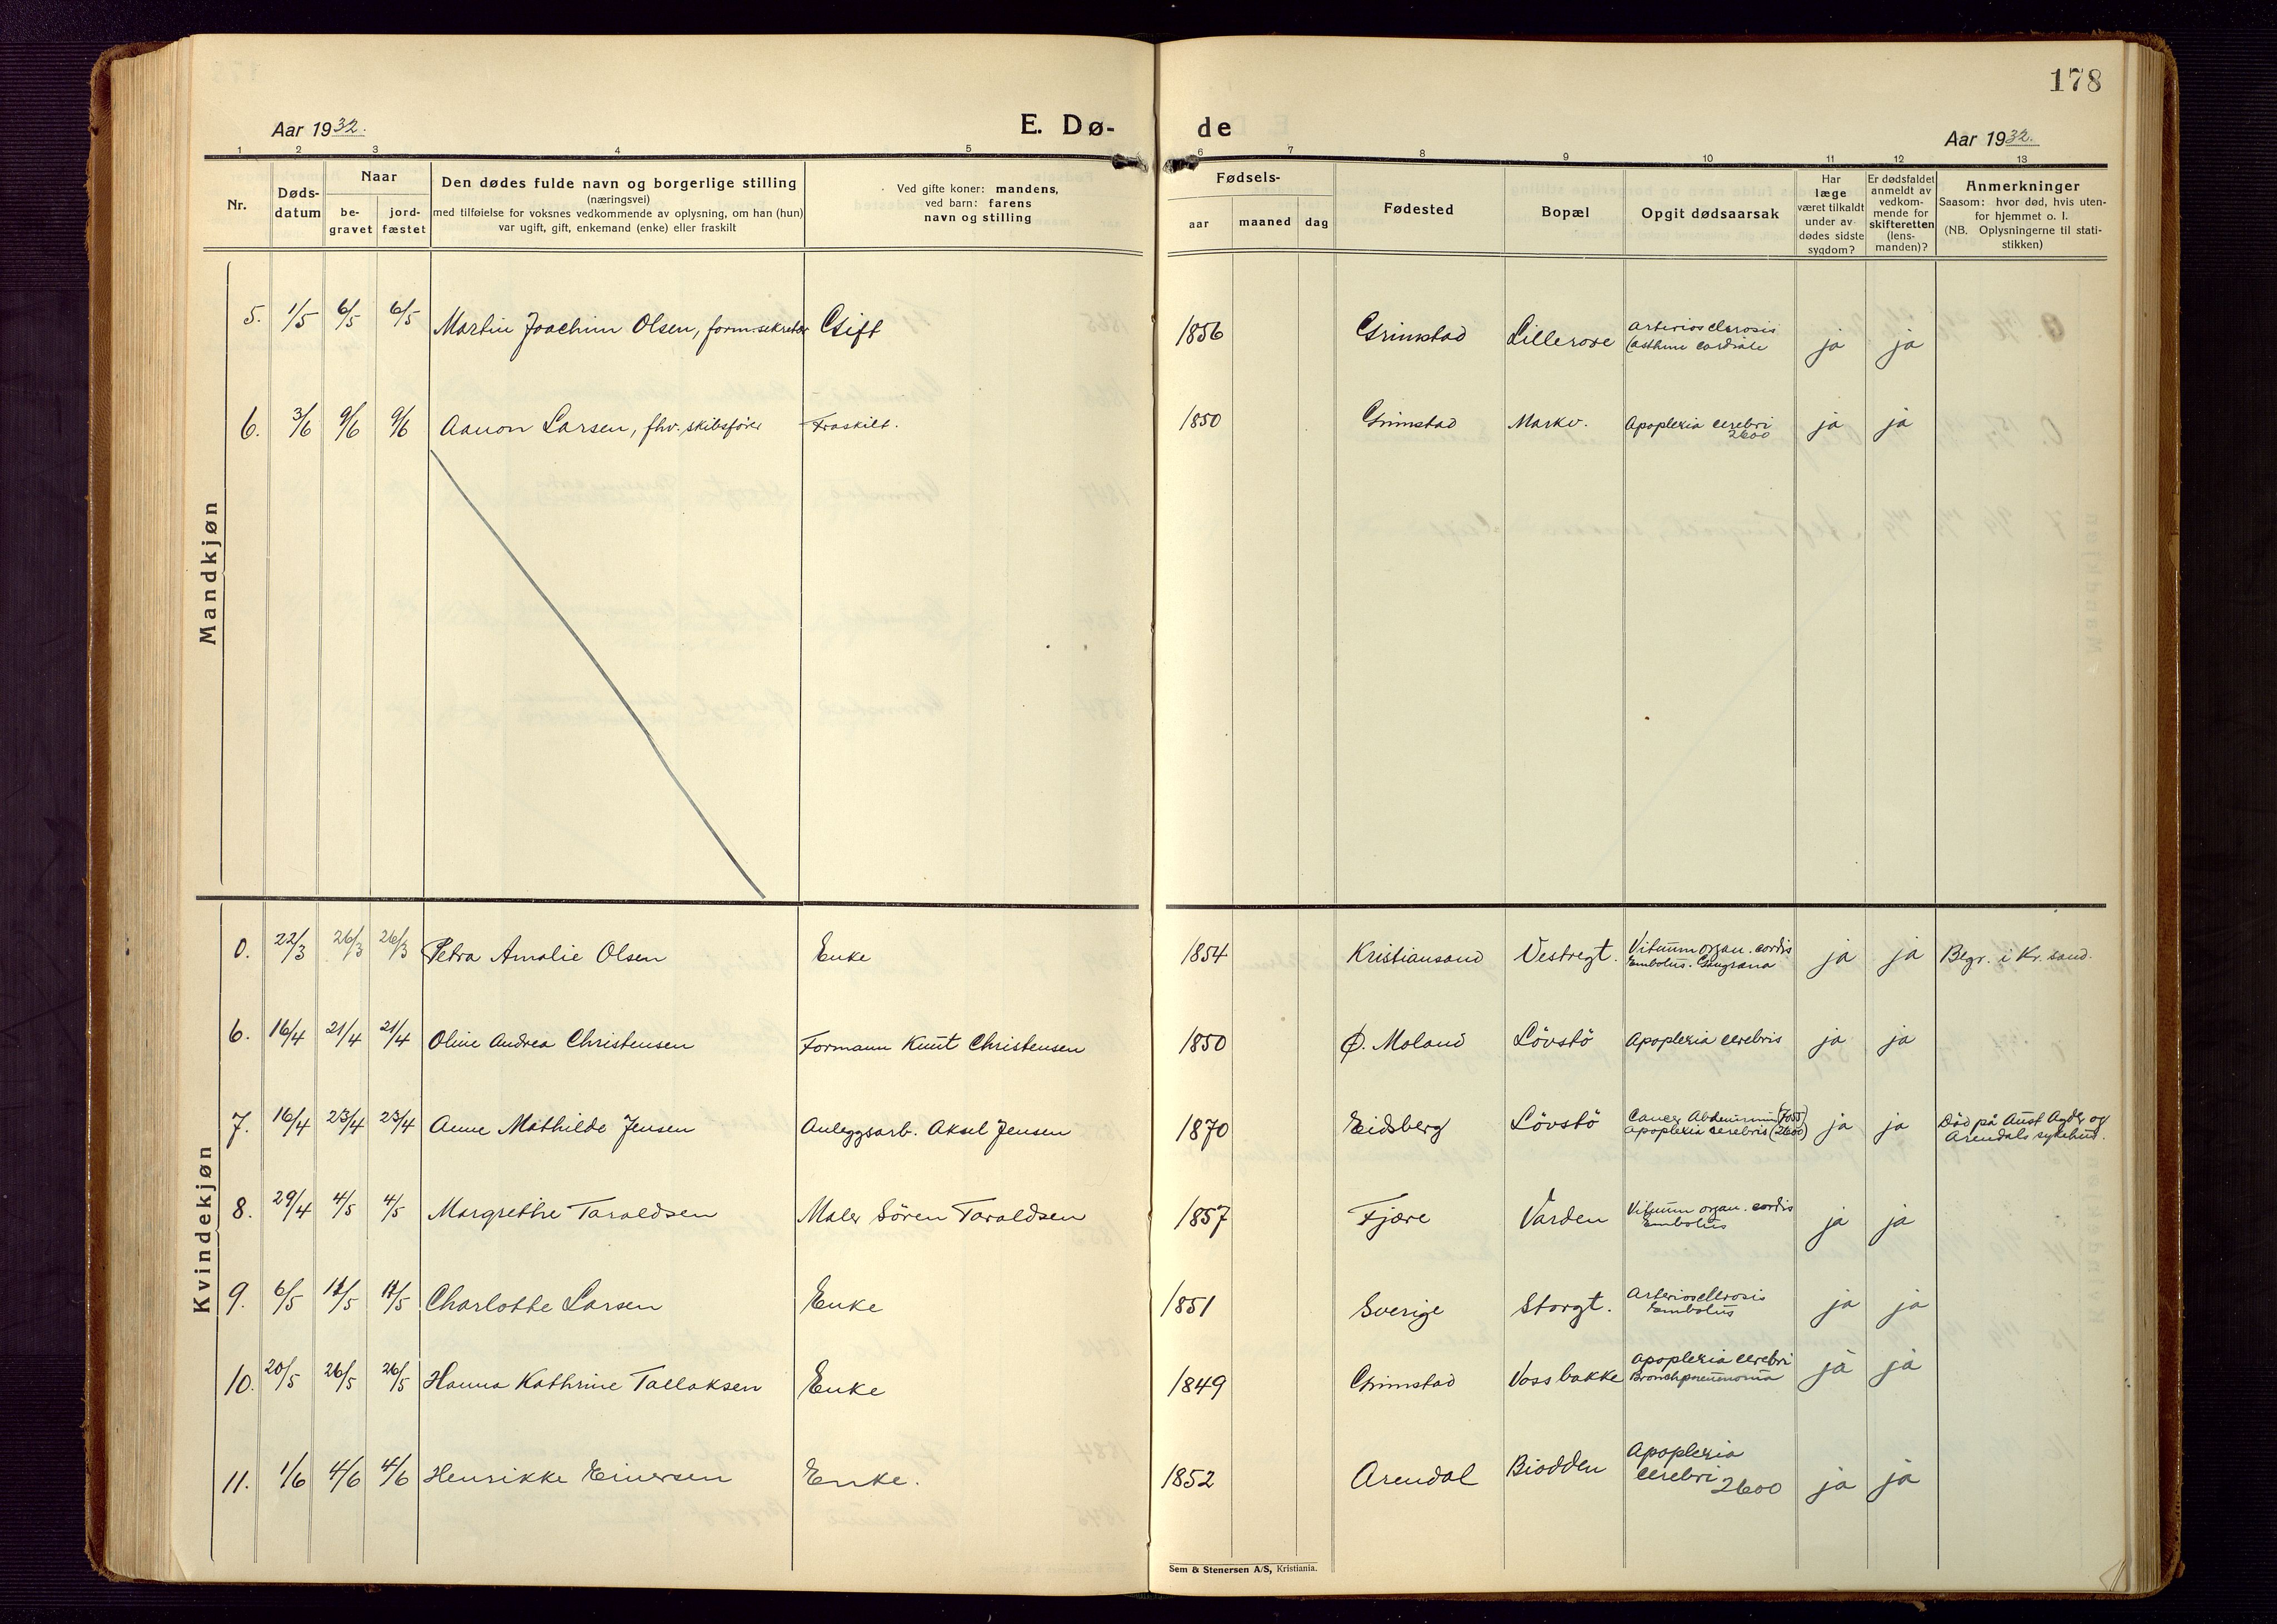 178
Aar 1932.
E. Dø-
de
Aar 1932.
1 2 3 4 5 6 7 8 9 10 11 12 13
Nr.
Døds-
datum
Naar
be-
gravet
jord-
fæstet
Den dødes fulde navn og borgerlige stilling
(næringsvei)
med tilføielse for voksnes vedkommende av oplysning, om han (hun)
var ugift, gift, enkemand (enke) eller fraskilt
Ved gifte koner: mandens,
ved barn: farens
navn og stilling
Fødsels-
aar maaned dag
Fødested
Bopæl
Opgit dødsaarsak
Har
læge
været tilkaldt
under av-
dødes sidste
sygdom?
Er dødsfaldet
anmeldt av
vedkom-
mende for
skifteretten
(lens-
manden)?
Anmerkninger
Saasom: hvor død, hvis uten-
for hjemmet o. l.
(NB. Oplysningerne til stati-
stikken)
Mandkjøn
5. 1/5 6/5 6/5 Martin Joachim Olsen, form.sekretær Gift 1856 Grimstad Lillerove Arteriosclerosis
(asthme cardiale ja ja
6. 3/6 9/6 9/6 Aanon Larsen, fhv. skibsfører Fraskilt. 1850 Grimstad Markv. Apoplexia cerebri
2600 ja ja
Kvindekjøn
0. 22/3 26/3 26/3 Petra Amalie Olsen Enke 1854 Kristiansand Vestregt. Vitium organ. cordis
Embolus. Gangræna ja ja Begr. i Kr. sand.
6. 16/4 21/4 21/4 Oline Andrea Christensen Formann Knut Christensen 1850 Ø. Moland Lövstö Apoplexia cerebris ja ja
7. 16/4 23/4 23/4 Anne Mathilde Jensen Anleggsarb. Aksel Jensen 1870 Eidsberg Lövstö Cancer
Apoplexia cerebris (2600) ja ja Död på Aust Agder og
Arendals sykehus.
8. 29/4 4/5 4/5 Margrethe Taraldsen Maler Sören Taraldsen 1857 Fjære Varden Vitium organ. cordis
Embolus ja ja
9. 6/5 Charlotte Larsen Enke 1851 Sverige Storgt. Arteriosclerosis
Embolus ja ja
10. 20/5 26/5 26/5 Hanna Kathrine Tallaksen Enke 1849 Grimstad Vossbakke Apoplexia cerebri
Bronchpneumonia ja ja
11. 1/6 4/6 4/6 Henrikke Einersen Enke. 1852 Arendal Biodden Apoplexia
cerebri 2600 ja ja
Sem & Stenersen A/S, Kristiania.